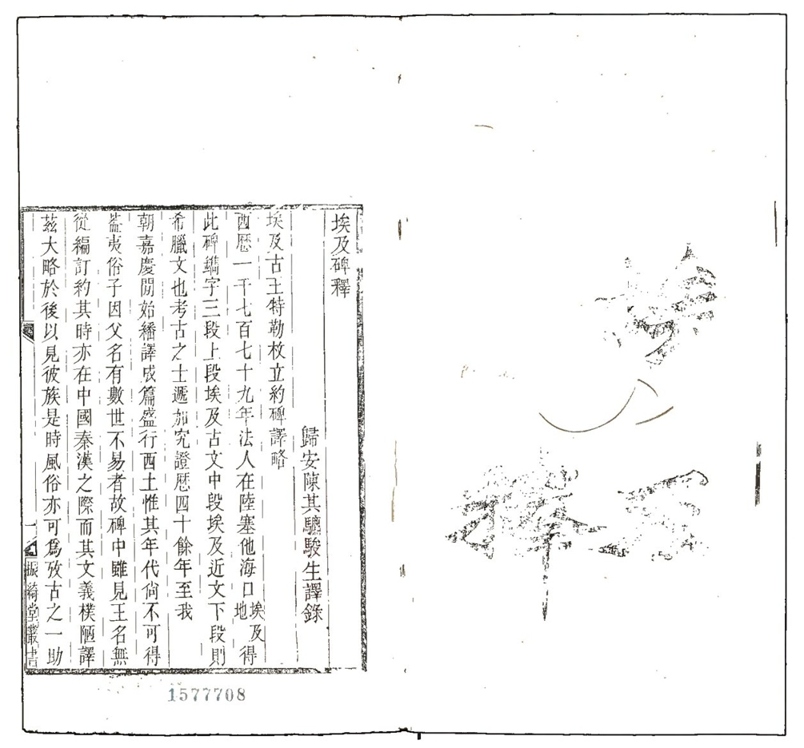 埃及碑釋
歸安陳其驦駿生譯錄
埃及古王特勒枚立約碑譯略
西歷一千七百七十九年法人在陸塞他海口埃及地得
此碑鐫字三段上段埃及古文中段埃及近文下段則
希臘文也考古之士遞加究證歷四十餘年至我
朝嘉慶閒始繙譯成篇盛行西土惟其年代尙不可得
蓋夷俗子因父名有數世不易者故碑中雖見王名無
從編訂約其時亦在中國秦漢之際而其文義樸陋譯
茲大略於後以見彼族是時風俗亦可爲攷古之一助
一
振綺堂叢書
1577708